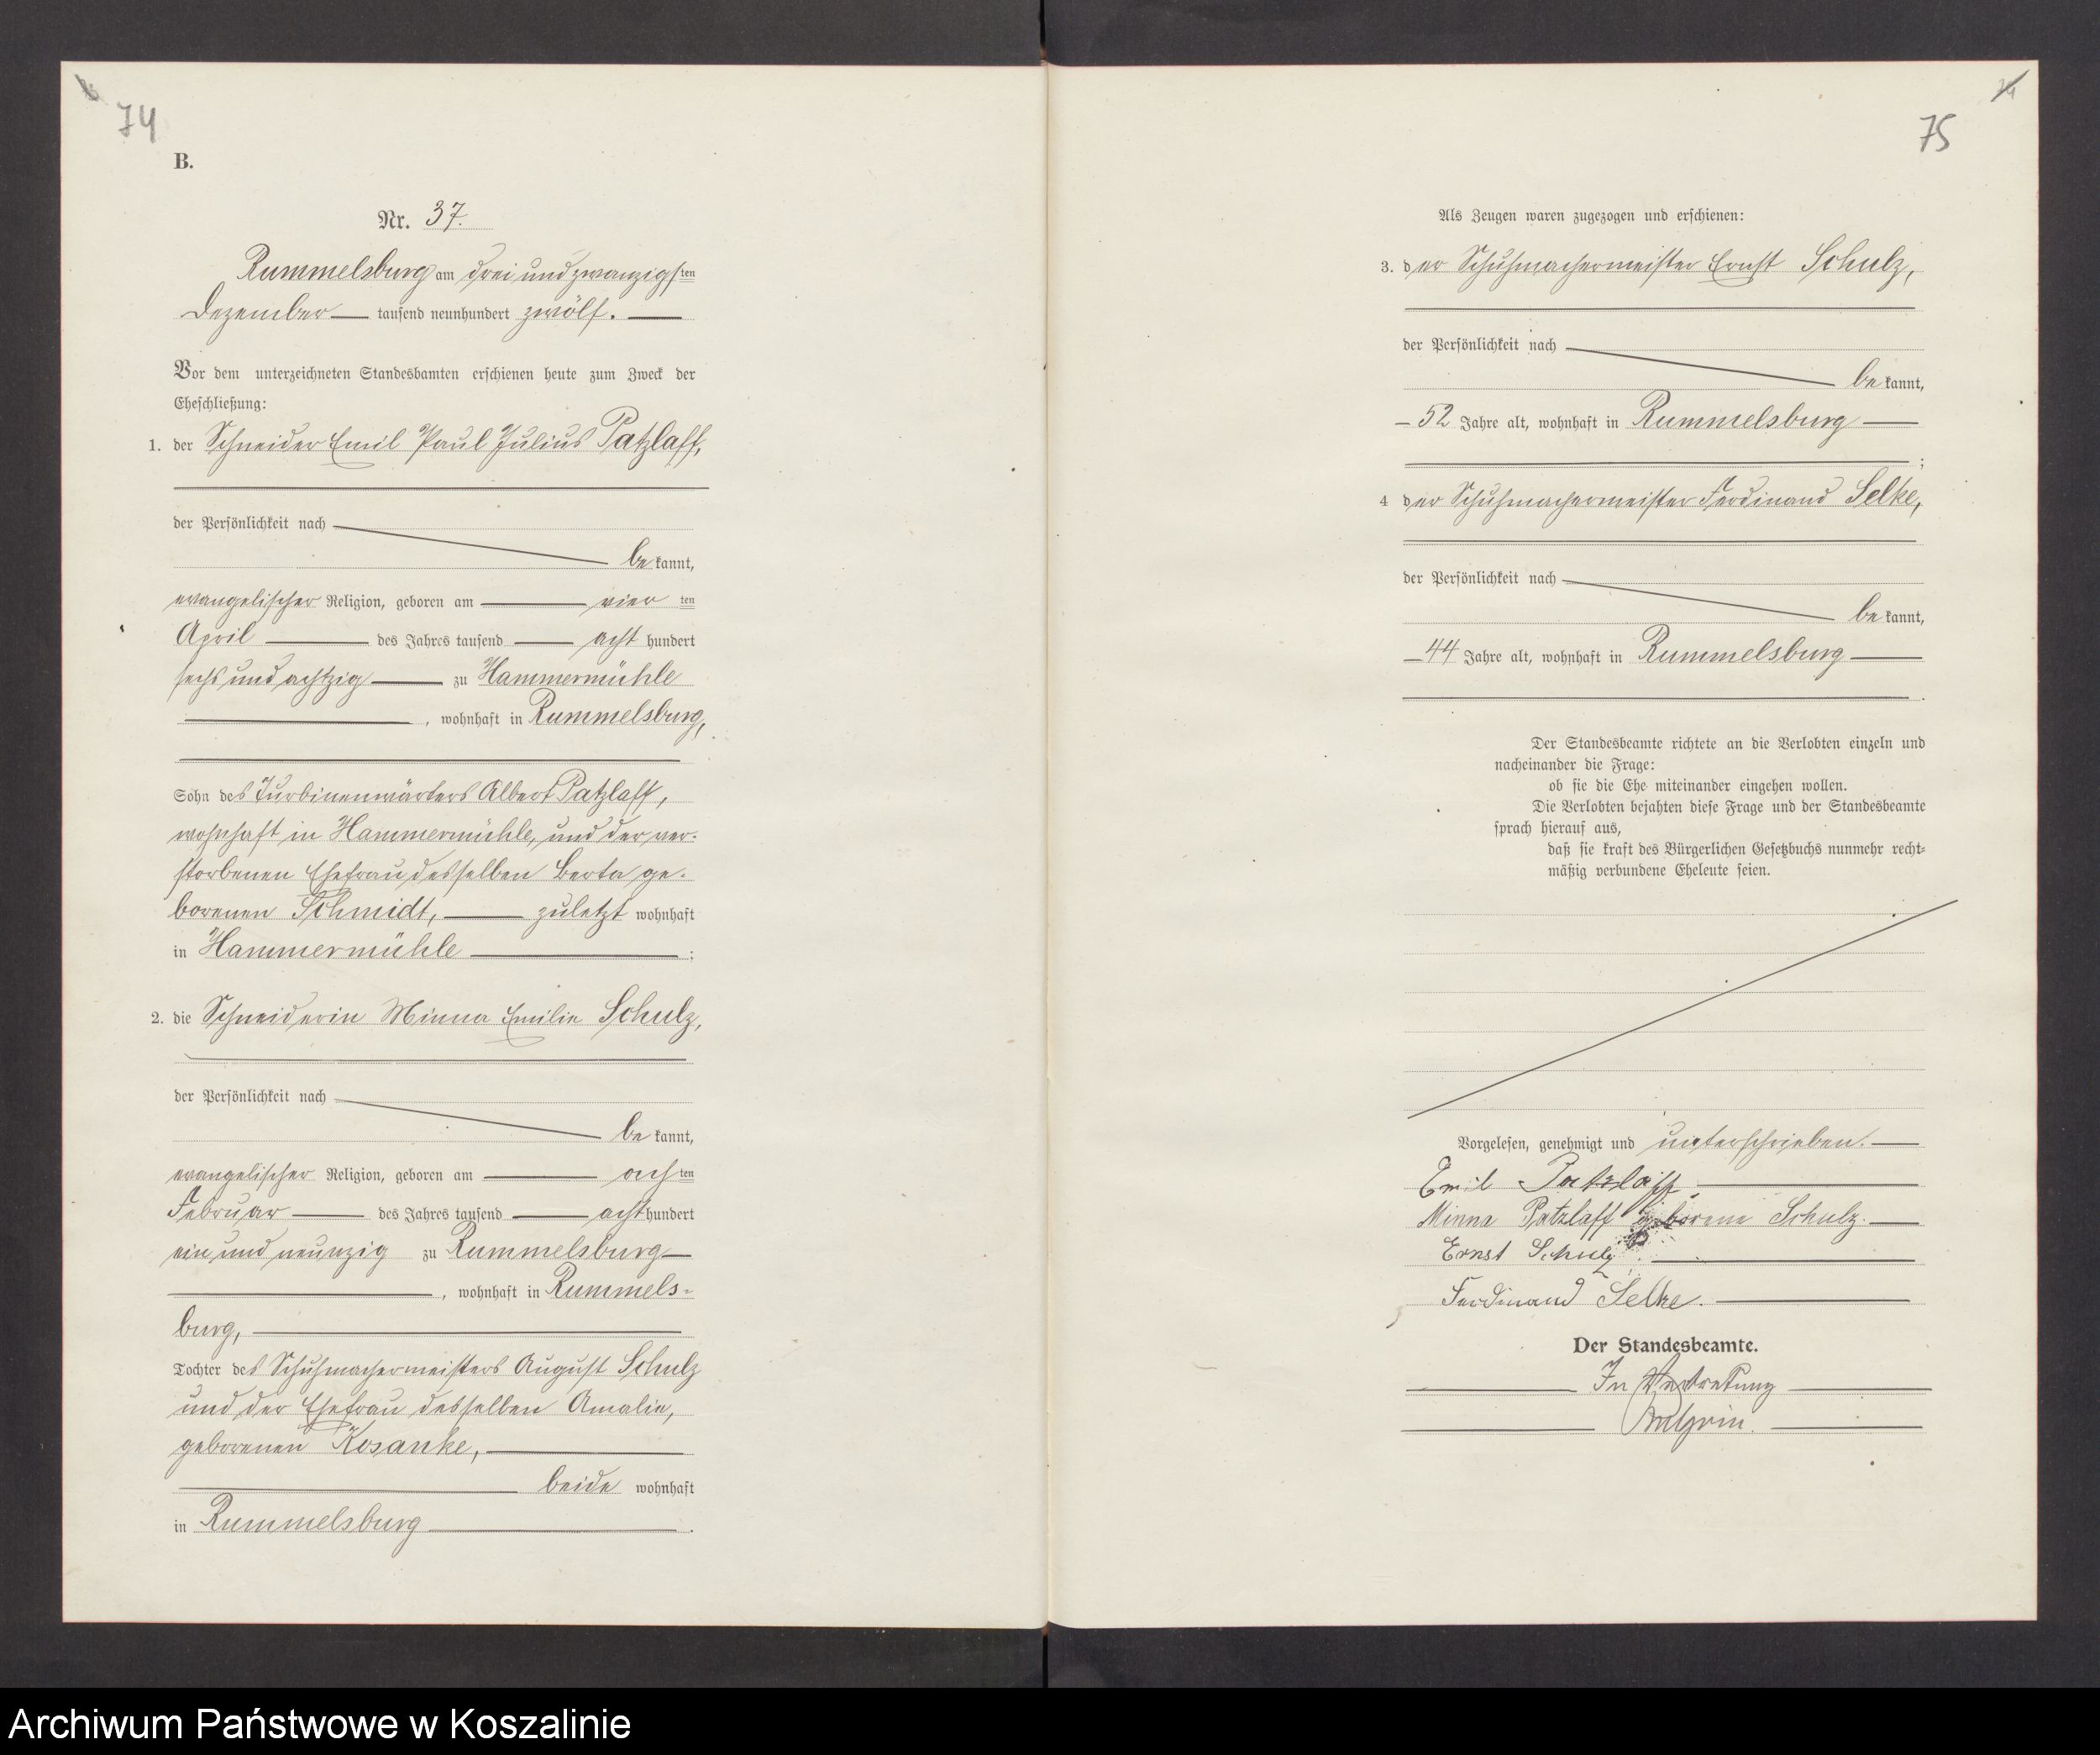 74
B.
Nr. 37.
Rummelsburg am drei und zwanzigsten
Dezember tausend neunhundert zwölf.
Vor dem unterzeichneten Standesbamten erschienen heute zum Zweck der
Eheschließung:
1. der Schneider Emil Paul Julius Patzlaff,
der Persönlichkeit nach
be kannt,
evangelischer Religion, geboren am vier ten
April des Jahres tausend acht hundert
sechs und achtzig zu Hammermühle
, wohnhaft in Rummelsburg,
Sohn des Turbinenwärters Albert Patzlaff,
wohnhaft in Hammermühle, und der ver-
storbenen Ehefrau desselben Berta ge-
borenen Schmidt, zuletzt wohnhaft
in Hammermühle ;
2. die Schneiderin Minna Emilie Schulz,
der Persönlichkeit nach
be kannt,
evangelischer Religion, geboren am ach ten
Februar des Jahres tausend acht hundert
ein und neunzig zu Rummelsburg
, wohnhaft in Rummels-
burg,
Tochter des Schuhmachermeisters August Schulz
und der Ehefrau desselben Amalie,
geborenen Kosanke,
beide wohnhaft
in Rummelsburg .
75
Als Zeugen waren zugezogen und erschienen:
3. der Schuhmachermeister Ernst Schulz,
der Persönlichkeit nach
be kannt,
52 Jahre alt, wohnhaft in Rummelsburg
;
4 der Schuhmachermeister Ferdinand Selke,
der Persönlichkeit nach
be kannt,
44 Jahre alt, wohnhaft in Rummelsburg
.
Der Standesbeamte richtete an die Verlobten einzeln und
nacheinander die Frage:
ob sie die Ehe miteinander eingehen wollen.
Die Verlobten bejahten diese Frage und der Standesbeamte
sprach hierauf aus,
daß sie kraft des Bürgerlichen Gesetzbuchs nunmehr recht-
mäßig verbundene Eheleute seien.
Vorgelesen, genehmigt und unterschrieben.
Emil Patzlaff
Minna Patzlaff geborene Schulz.
Ernst Schulz.
Ferdinand Selke.
Der Standesbeamte.
In Vertretung
Archiwum Państwowe w Koszalinie